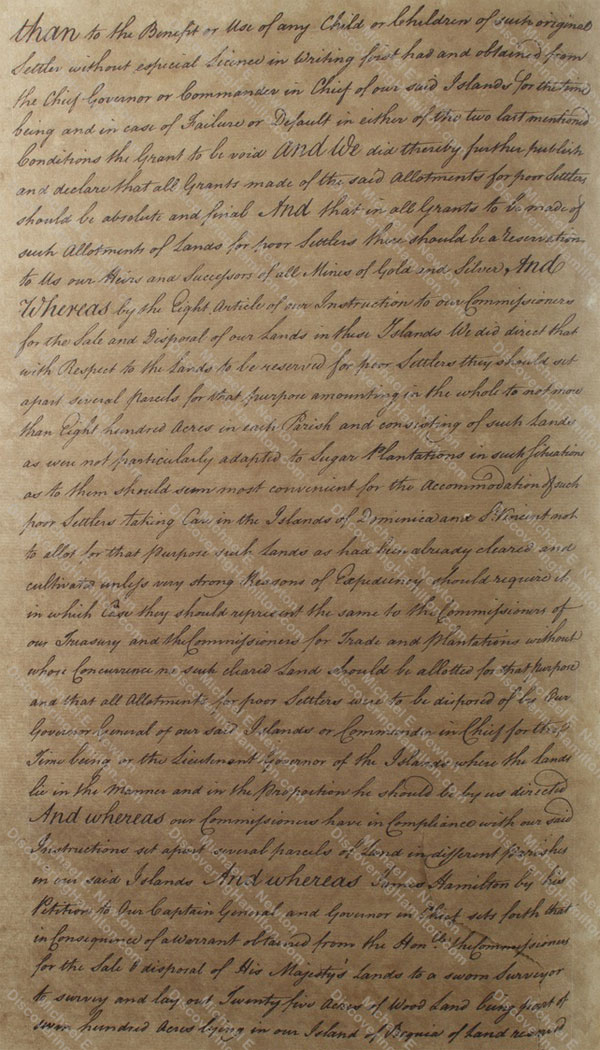 than to the Benefit or Use of any Child or Children of such original
Settler without especial Licence in Writing first had and obtained from
the Chief Governor or Commander in Chief of our said Islands for the time
being and in case of Failure or Default in either of the two last mentioned
Conditions the Grant to be void And We did thereby further publish
and declare that all Grants made of the said Allotments for poor Settlers
should be absolute and final And that in all Grants to be made of
such Allotments of Lands for poor Settlers there should be a reservation
to Us our Heirs and Successors of all Mines of Gold and Silver And
Whereas by the Eight Article of our Instruction to our Commissioners
for the Sale and Disposal of our Lands in these Islands We did direct that
with Respect to the Lands to be reserved for poor Settlers they should set
apart several Parcels for that purpose amounting in the whole to not more
than Eight hundred Acres in each Parish and consisting of such Lands
as were not particularly adapted to Sugar Plantations in such Situations
as to them should seem most convenient for the Accommodation of such
poor Settlers taking Care in the Islands of Dominica and St Vincent not
to allot for that purpose such Lands as had been already cleared and
cultivated unless very strong Reasons of Expediency should require it
in which Case they should represent the same to the Commissioners of
our Treasury and the Commissioners for Trade and Plantations without
whose Concurrence no such cleared Land should be allotted for that Purpose
and that all Allotments for poor Settlers were to be disposed of by Our
Governor General of our said Islands or Commander in Chief for the
Time being or the Lieutenant Governor of the Islands where the lands
lie in the Manner and in the Proportion he should be by us directed
And whereas our Commissioners have in Compliance with our said
Instructions set apart several parcels of Land in different Parishes
in our said Islands And whereas James Hamilton by his
Petition to Our Captain General and Governor in Chief sets forth that
in Consequence of a Warrant obtained from the Honble the Commissioners
for the Sale & disposal of His Majesty's Lands to a sworn Surveyor
to survey and lay out Twenty five Acres of Wood Land being part of
seven hundred Acres lying in our Island of Bequia of Land reserved
Michael E. Newton
DiscoveringHamilton.com